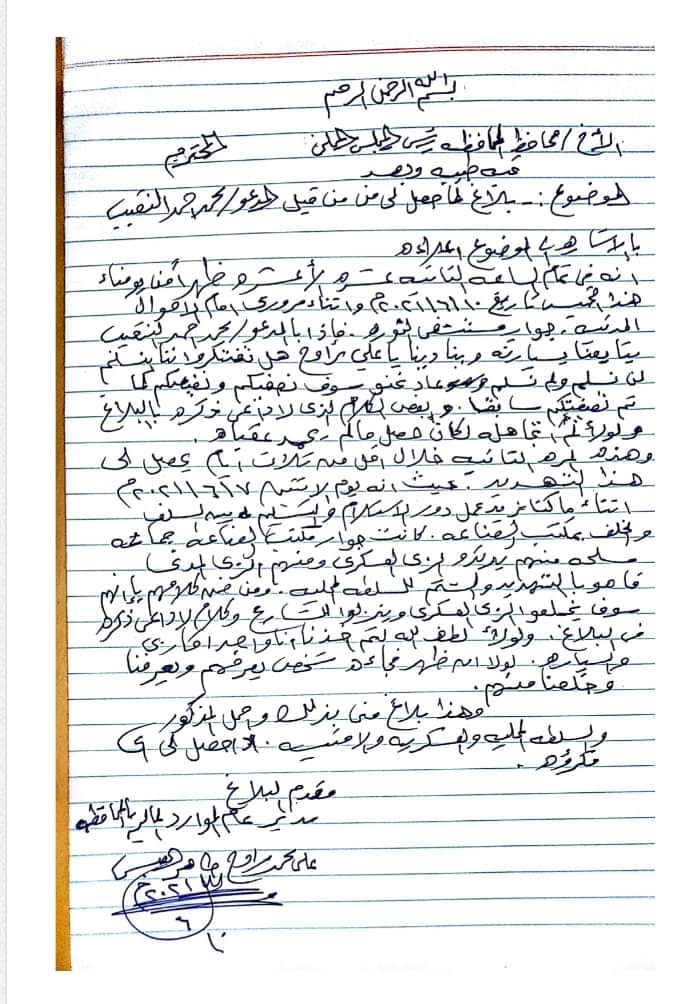 بسم الله الرحمن الرحيم
الأخ/ محافظ المحافظه رئيس المجلس المحلي المحترم
تحيه طيبه وبعد
الموضوع :- بلاغ لما حصل لي من من قبل المدعو/ محمد احمد النقيب
بالاشاره الى الموضوع اعلاه
انه في تمام الساعه الثانيه عشره لا عشره ظهراً من يومنا
هذا الخميس تاريخ ٢٠٢١/٦/١٠م واثناء مروري امام الاحوال
المدنيه. جوار مستشفى الثوره. فاذا بالمدعو/ محمد احمد النقيب
يتابعنا بسيارته وينادينا يا علي راوح هل تفتكروا اننا بنسلم
لن نسلم ولم نسلم عاد نحنو سوف نصفيكم ونفيعكم كما
تم تصفيتكم سابقا. وبعض الكلام الذي لا داعي ذكره بالبلاغ
ولولا تجاهله لكان حصل مالم يحمد عقباه.
وهذه المره الثانيه خلال اقل من ثلاث ايام يحصل لي
هذا التهديد. حيث انه يوم الاثنين ٢٠٢١/٦/٧م
اثناء ما كنا نريد عمل دور الاستلام والتسليم بين السلف
والخلف بمكتب الصناعه. كانت جوار مكتب الصناعه جماعه
مسلحه منهم يرتدو الزي العسكري ومنهم الزي المدي
قاموا بالتهديد والشتم للسلطه المحليه. ومن ضمن كلامهم بانهم
سوف يخلعوا الزي العسكري وينزلوا الشارع وكلام لا داعي ذكره
في البلاغ. ولولا لطف الله لتم اخذنا انا واحد افكاري
والسياره. لولا انه ظهر فجاءه شخص يعرفهم ويعرفنا
وخلصنا منهم.
وهذا بلاغ مني بذلك واحمل المذكور
والسلطه المحليه والعسكريه والامنيه. اذا حصل لي اي
مكروه.
مقدم البلاغ
مدير عام الموارد الماليه بالمحافظه
علي محمد راوح
٢٠٢١م
٦
١٠